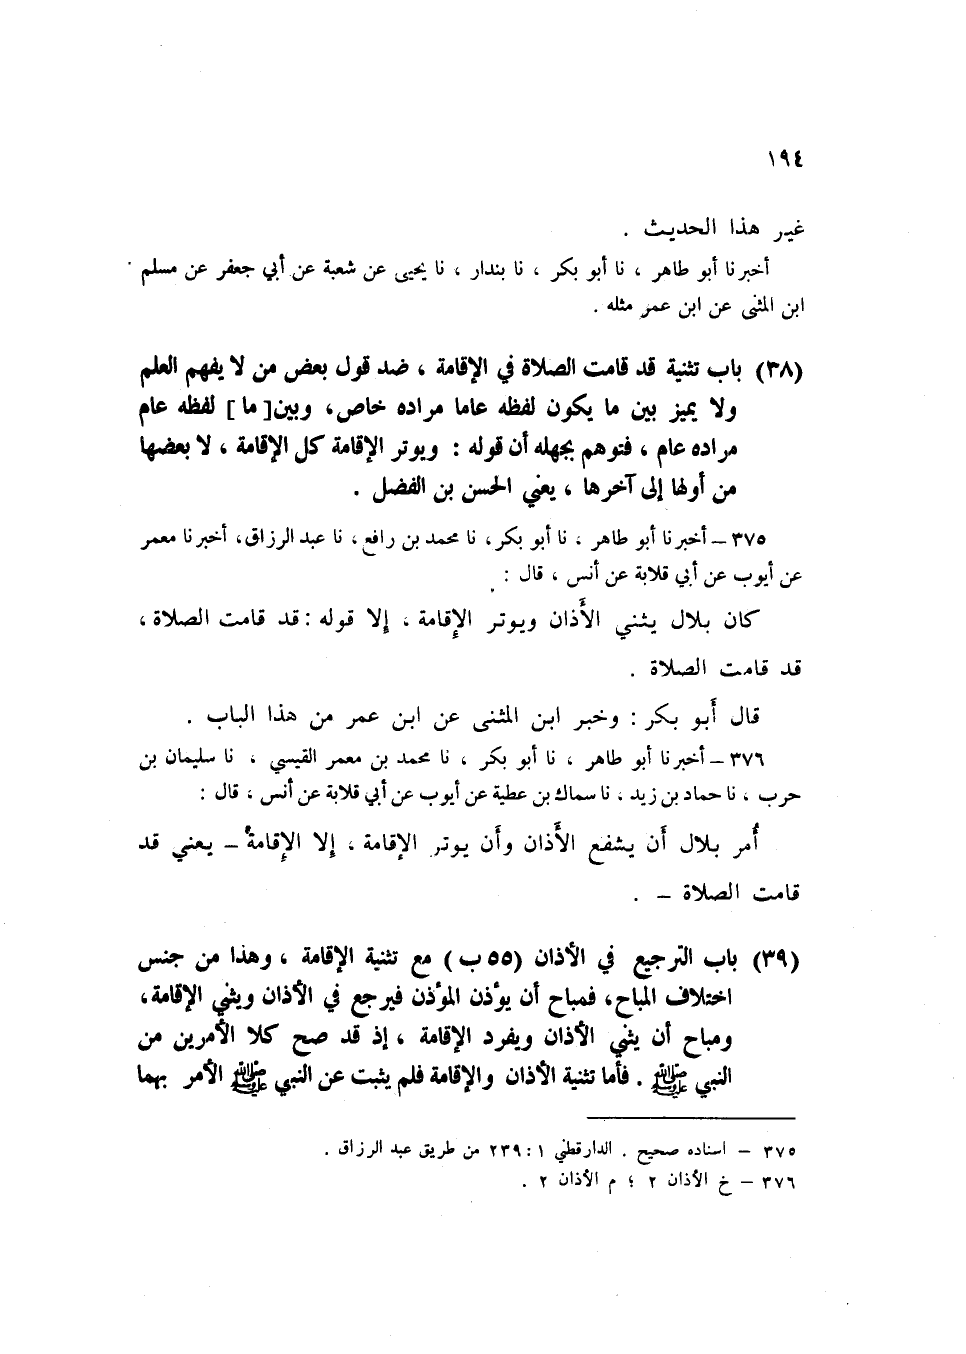 ١٩٤
غير هذا الحديث .
أخبرنا أبو طاهر ، نا أبو بكر ، نا بندار ، نا يحيى عن شعبة عن أبي جعفر عن مسلم
ابن المثنى عن ابن عمر مثله .
(٣٨) باب تثنية قد قامت الصلاة في الإقامة ، ضد قول بعض من لا يفهم العلم
ولا يميز بين ما يكون لفظه عاما مراده خاص، وبين[ ما ] لفظه عام
مراده عام ، فتوهم بجهله أن قوله : ويوتر الإقامة كل الإقامة ، لا بعضها
من أولها إلى آخرها ، يعني الحسن بن الفضل .
٣٧٥ – أخبرنا أبو طاهر ، نا أبو بكر، نا محمد بن رافع، نا عبد الرزاق، أخبرنا معمر
عن أيوب عن أبي قلابة عن أنس ، قال :
كان بلال يثني الأَذان ويوتر الإِقامة ، إِلا قوله : قد قامت الصلاة ،
قد قامت الصلاة .
قال أَبو بكر : وخبر ابن المثنى عن ابن عمر من هذا الباب .
٣٧٦ – أخبرنا أبو طاهر ، نا أبو بكر ، نا محمد بن معمر القيسي ، نا سليمان بن
حرب ، نا حماد بن زيد ، نا سماك بن عطية عن أيوب عن أبي قلابة عن أنس ، قال :
أُمر بلال أَن يشفع الأَذان وأَن يوتر الإقامة ، إِلا الإِقامة – يعني قد
قامت الصلاة – .
(٣٩) باب الترجيع في الأذان (٥٥ ب) مع تثنية الإقامة ، وهذا من جنس
اختلاف المباح، فمباح أن يؤذن المؤذن فيرجع في الأذان ويثني الإقامة،
ومباح أن يثني الأذان ويفرد الإقامة ، إذ قد صح كلا الأمرين من
النبي ﷺ . فأما تثنية الأذان والإقامة فلم يثبت عن النبي ﷺ الأمر بهما
٣٧٥ – اسناده صحيح . الدارقطني ١ : ٢٣٩ من طريق عبد الرزاق .
٣٧٦ – خ الأذان ٢ ؛ م الأذان ٢ .